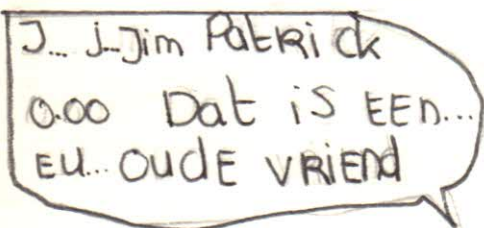 J... j..Jim Patrick
O.oo Dat is EEn...
EU... OUdE VRiEnd